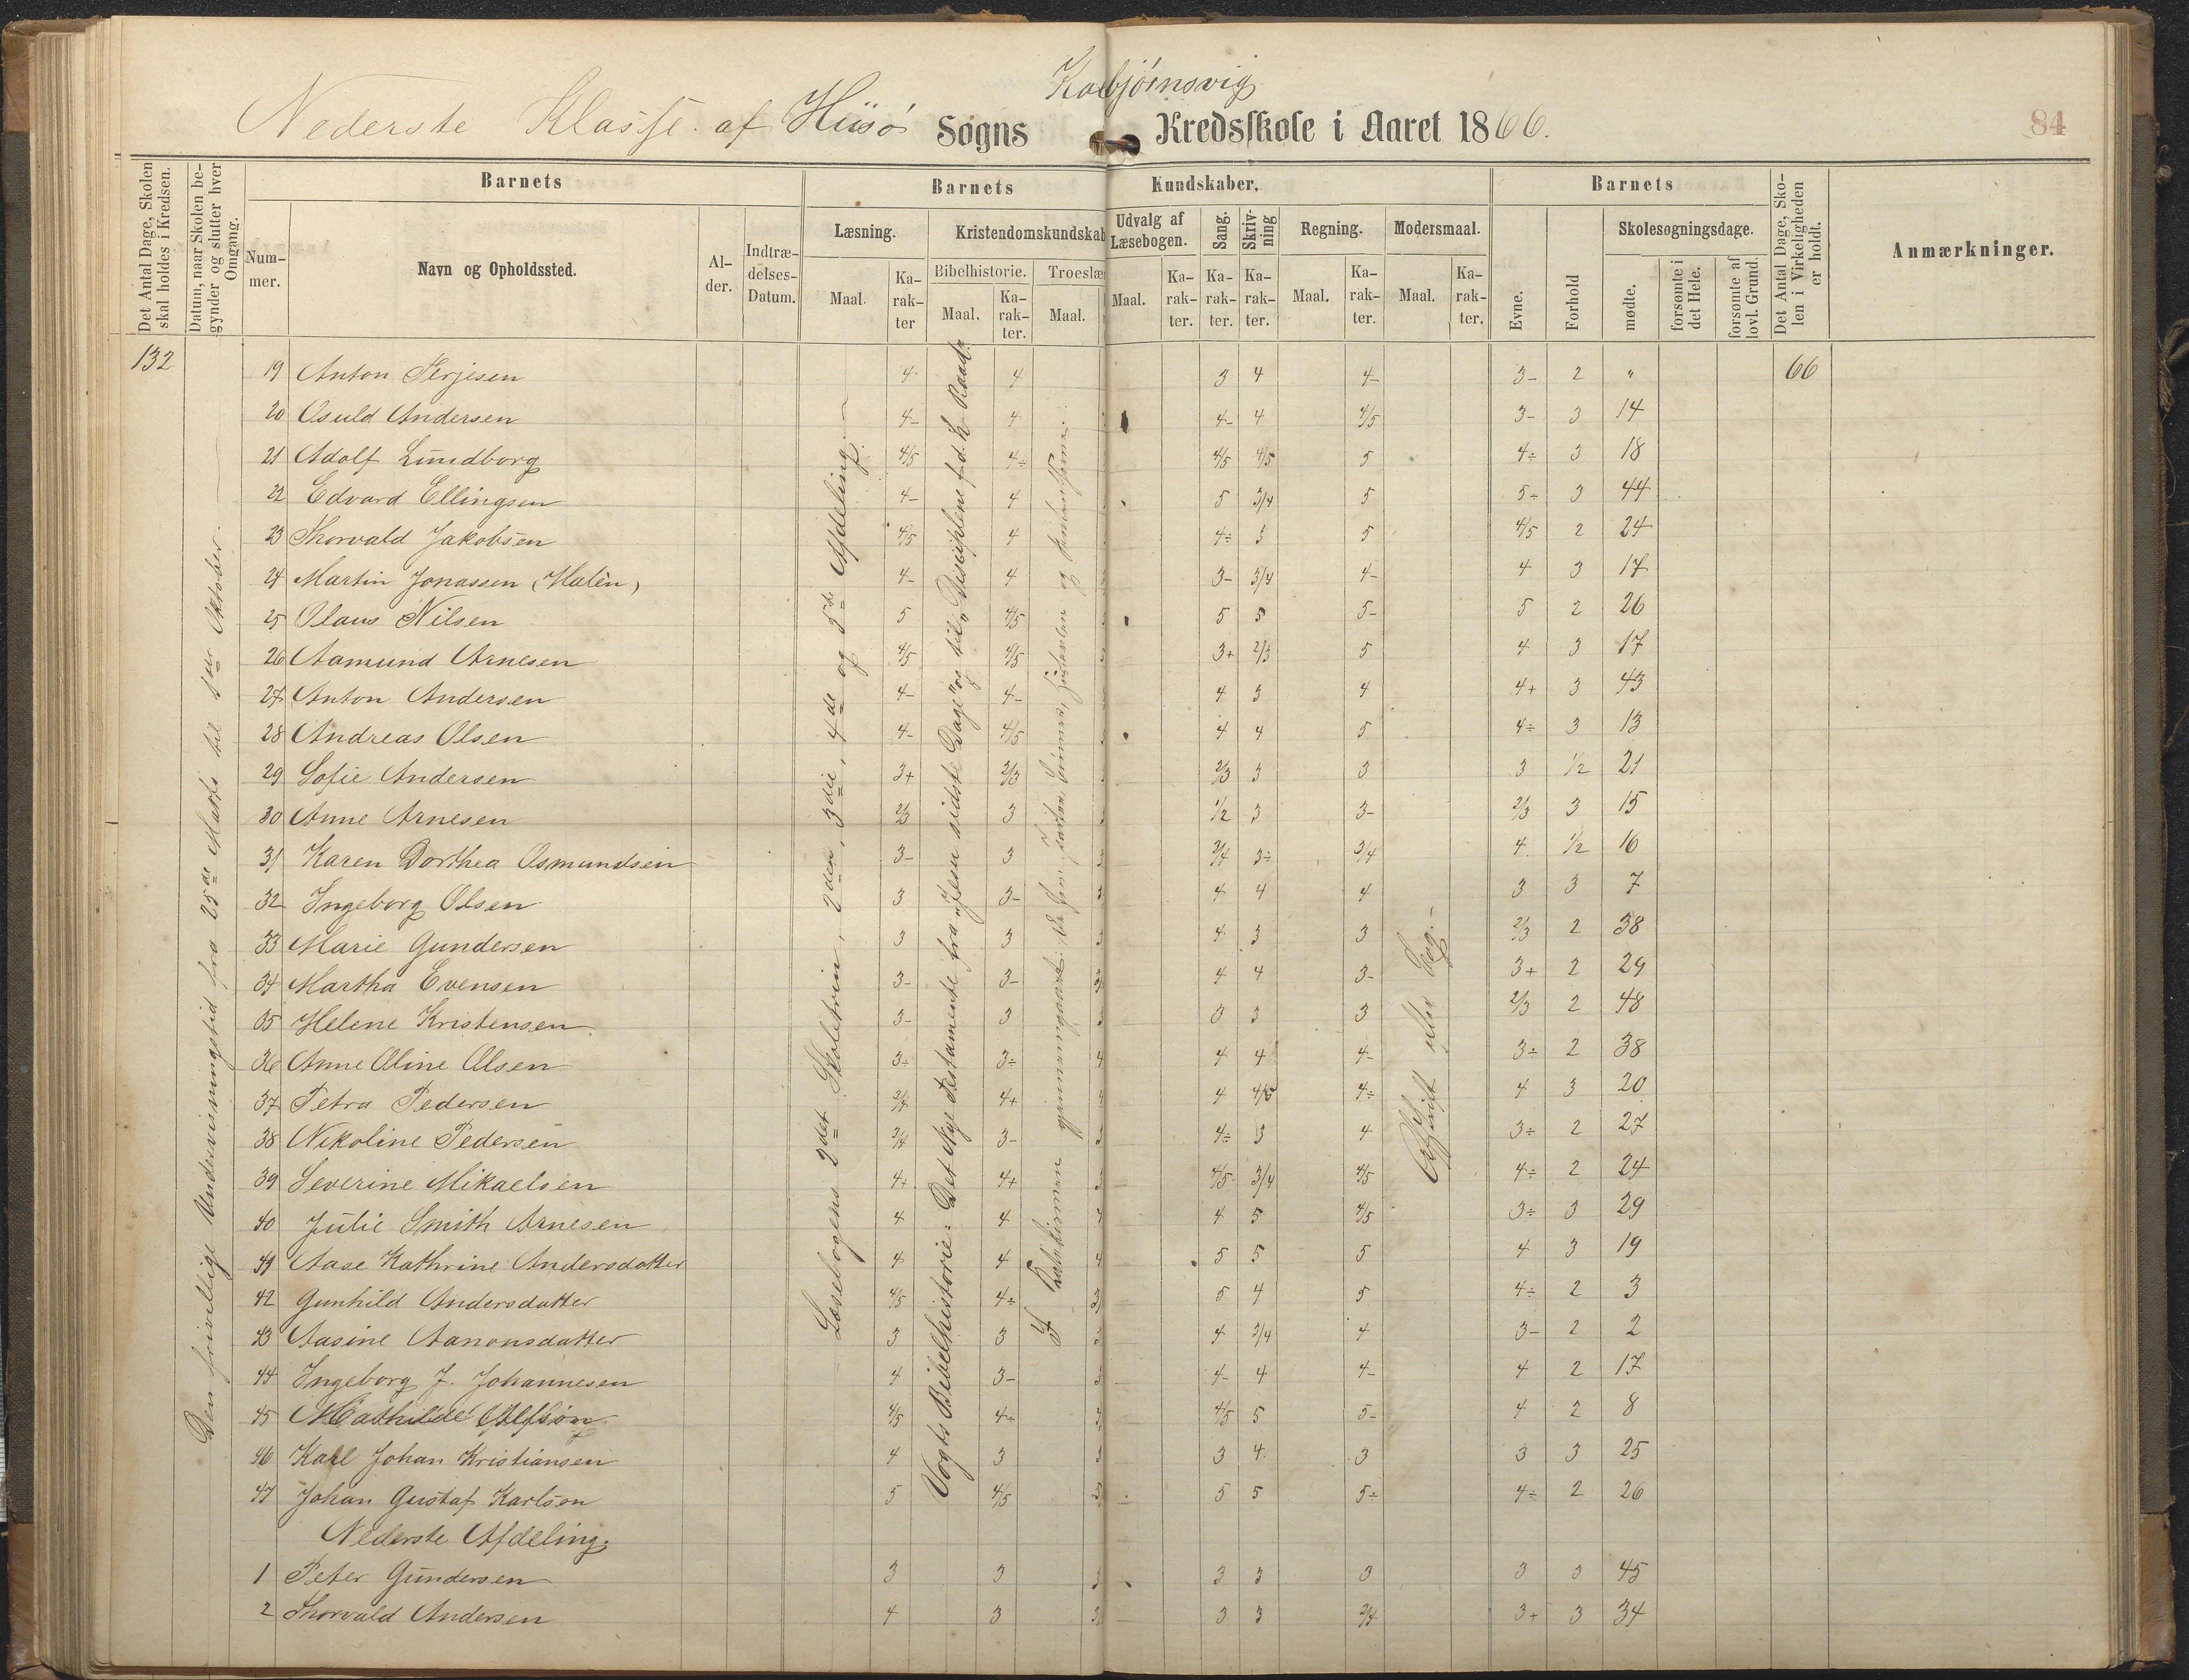 Kolbjörnsvig
Nederste Klasse af Hisö Sogns Kredsskole i Aaret 1866.
84
Det Antal Dage, Skolen skal holdes i Kredsen.
Datum, naar Skolen begynder og slutter hver Omgang.
Barnets
Barnets
Kundskaber.
Barnets
Det Antal Dage, Skolen i Virkeligheden er holdt.
Anmærkninger.
Nummer.
Navn og Opholdssted.
Alder.
Indtrædelses-Datum.
Læsning.
Kristendomskundskab
Udvalg af Læsebogen.
Sang.
Skrivning
Regning.
Modersmaal.
Evne.
Forhold
Skolesøgningsdage.
Bibelhistorie.
Troeslæ
Maal.
Karakter
Maal.
Karakter.
Maal.
Maal.
Karakter.
Karakter.
Karakter.
Maal.
Karakter.
Maal.
Karakter.
mødte.
forsømte i det Hele.
forsømte af lovl. Grund.
132
Den frivillige Undervisningstid fra 25de Marts til 1ste Oktober.
Læsebogens 2det Skoletrin, 2den, 3die, 4de og 5te Afdeling.
Vogts Bibelhistorie: Det Nye Testamente fra "Jesu sidste Dage" og til "Disciplene f. d. h. Raad".
19 Anton Terjesen 4 4 3 4 4- 3- 2 " 66
20 Osuld Andersen 4- 4 4- 4 4/5 3- 3 14
21 Adolf Lundborg 4/5 4÷ 4/5 4/5 5 4÷ 3 18
22 Edvard Ellingsen 4- 4 5 3/4 5 5÷ 3 44
23 Thorvald Jakobsen 4/5 4 4÷ 3 5 4/5 2 24
24 Martin Jonassen (Malèn) 4- 4 3- 3/4 4- 4 3 17
25 Olaus Nilsen 5 4/5 5 5 5- 5 2 26
26 Aamund Arnesen 4/5 4/5 3+ 2/3 5 4 3 17
27 Anton Andersen 4- 4- 4 3 4 4+ 3 43
28 Andreas Olsen 4- 4/5 4 4 5 4÷ 3 13
29 Sofie Andersen 3+ 2/3 2/3 3 3 3 1/2 21
30 Anne Arnesen 2/3 3 1/2 3 3- 2/3 3 15
31 Karen Dorthea Osmundsen 3- 3 3/4 3÷ 3/4 4 1/2 16
32 Ingeborg Olsen 3 3- 4 4 4 3 3 7
33 Marie Gundersen 3 3 4 3 3 2/3 2 38
34 Martha Evensen 3- 3- 4 4 3- 3+ 2 29
35 Helene Kristensen 3- 3 3 3 3 2/3 2 48
36 Anne Oline Olsen 3÷ 3÷ 4 4 4- 3÷ 2 38
37 Petra Pedersen 3/4 4+ 4 4/5 4÷ 4 3 20
38 Nikoline Pedersen 3/4 3- 4÷ 3 4 3÷ 2 27
39 Severine Mikaelsen 4+ 4+ 4/5 3/4 4/5 4÷ 2 24
40 Julie Smith Arnesen 4 4 4 5 4/5 3÷ 3 29
41 Aase Kathrine Andersdatter 4 4 5 5 5 4 3 19
42 Gunhild Andersdatter 4/5 4÷ 5 4 5 4÷ 2 3
43 Aasine Aanonsdatter 3 3 4 3/4 4 3- 2 2
44 Ingeborg J. Johannesen 4 3- 4- 4 4- 4 2 17
45 Mathilde 4/5 4/5 5 5- 4 2 8
46 Karl Johan Kristiansen 4 3 3 4 3 3 3 25
47 Johan Gustaf Karlson 5 4/5 5 5 5÷ 4÷ 2 26
Nederste Afdeling.
1 Peter Gundersen 3 3 3 3 3 3 3 45
2 Thorvald Andersen 4 3 3 3 3/4 3+ 3 34